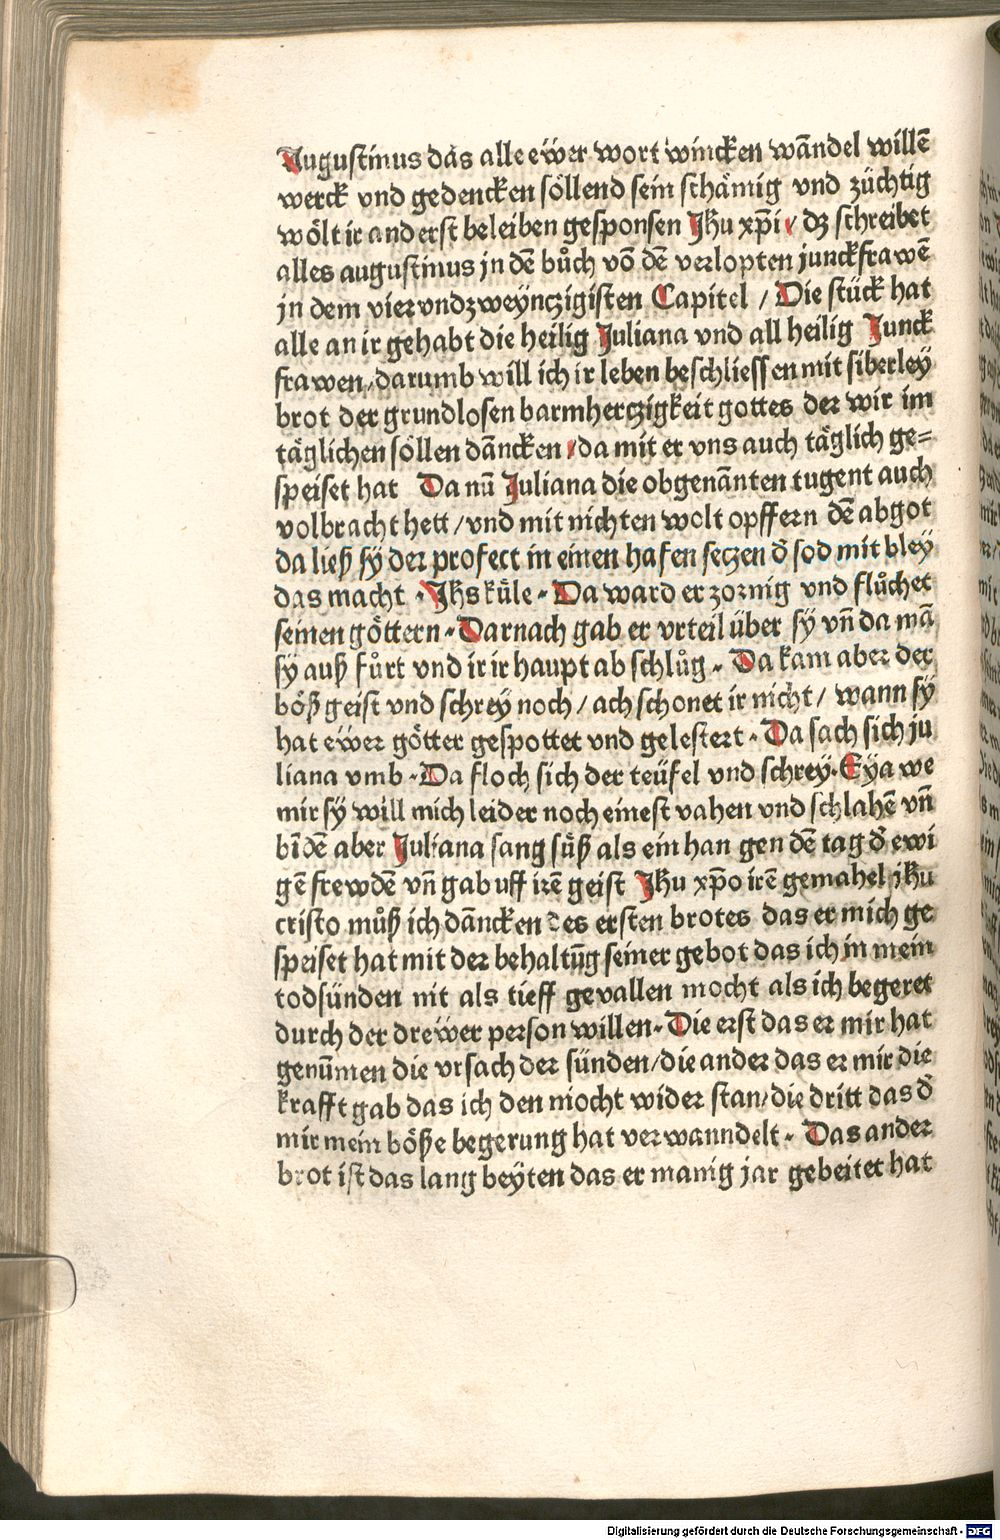 Augustinus das alle ewer wort wincken wãndel willẽ
werck vnd gedencken söllend sein schämig vnd züchtig
wölt ir anderst beleiben gesponsen Jħu xp̄i / dz schreibet
alles augustinus jn dẽ bůch võ dẽ verlopten junckfrawẽ
jn dem vier vndzweÿnczigisten Capitel / Die stück hat
alle an ir gehabt die heilig Juliana vnd all heilig Junck
frawen / darumb will ich ir leben beschliessen mit siberleÿ
brot der grundlosen barmherczigkeit gottes der wir im
täglichen söllen dãncken / da mit er vns auch täglich ge=
speiset hat Da nũ Juliana die obgenãnten tugent auch
volbracht hett / vnd mit nichten wolt opffern dẽ abgot
da ließ sÿ der profect in einen hafen seczen đ sod mit bleÿ
das macht . Jħs kůle . Da ward er zornig vnd flůchet
seinen göttern . Darnach gab er vrteil über sÿ vñ da mã
sÿ auß fůrt vnd ir ir haupt ab schlůg . Da kam aber der
böß geist vnd schreÿ noch / ach schonet ir nicht / wann sÿ
hat ewer götter gespottet vnd gelestert . Da sach sich ju
liana vmb . Da floch sich der teüfel vnd schreÿ . Eÿa we
mir sÿ will mich leider noch einest vahen vnd schlahẽ vñ
bĩdẽ aber Juliana sang sůß als ein han gen dẽ tag đ ewi
gẽ frewdẽ vñ gab uff irẽ geist Jħu xp̄o irẽ gemahel jħu
cristo můß ich dãncken des ersten brotes das er mich ge
speiset hat mit der behaltũg seiner gebot das ich in mein
todsünden nit als tieff gevallen mocht als ich begeret
durch der drewer person willen . Die erst das er mir hat
genũmen die vrsach der sünden / die ander das er mir die
krafft gab das ich den mocht wider stan / die dritt das đ
mir mein böße begerung hat verwanndelt . Das ander
brot ist das lang beÿten das er manig jar gebeitet hat
Digitalisierung gefördert durch die Deutsche Forschungsgemeinschaft - DFG